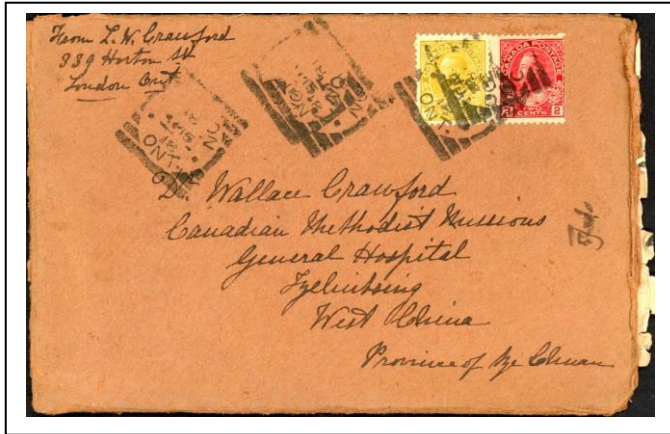 From L. W. Crawford
339 Horton St
London Ont
CANADA POSTAGE
2 CENTS 2
LONDON
ONT.
Dr. Wallace Crawford
Canadian Methodist Missions
General Hospital
Tzeliutsing
West China
Province of Sze Chuan